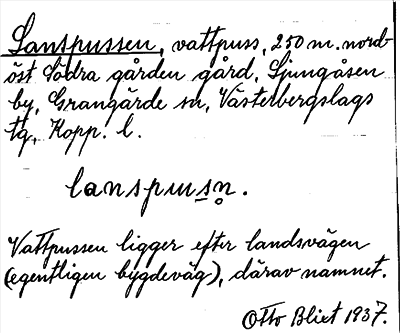 Lanspussen, vattpuss, 250 m. nord-
öst Södra gården gård, Ljungåsen
by, Grangärde sn, Västerbergslags
tg, Kopp. l.
lanspusn̥.
Vattpussen ligger efter landsvägen
(egentligen bygdeväg), därav namnet.
Otto Blixt 1937.